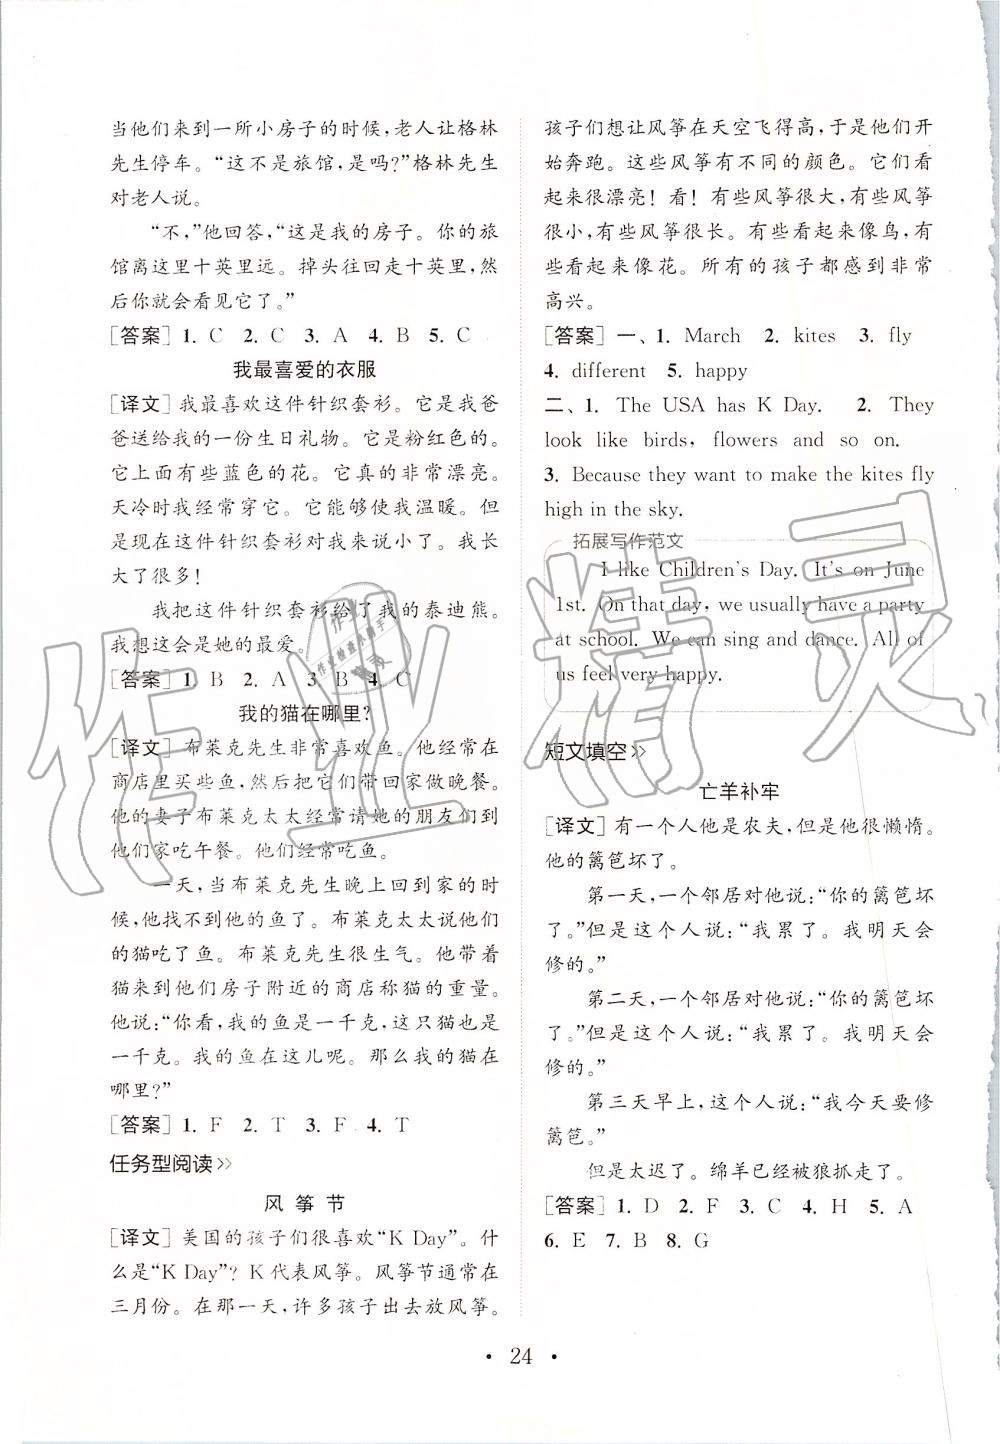 当他们来到一所小房子的时候，老人让格林
先生停车。“这不是旅馆，是吗？”格林先生
对老人说。
“不，”他回答，“这是我的房子。你的旅
馆离这里十英里远。掉头往回走十英里，然
后你就会看见它了。”
[答案] 1. C 2. C 3. A 4. B 5. C
我最喜爱的衣服
[译文] 我最喜欢这件针织套衫。它是我爸
爸送给我的一份生日礼物。它是粉红色的。
它上面有些蓝色的花。它真的非常漂亮。
天冷时我经常穿它。它能够使我温暖。但
是现在这件针织套衫对我来说小了。我长
大了很多！
我把这件针织套衫给了我的泰迪熊。
我想这会是她的最爱。
[答案] 1. B 2. A 3. B 4. C
我的猫在哪里？
[译文] 布莱克先生非常喜欢鱼。他经常在
商店里买些鱼，然后将它们带回家做晚餐。
他的妻子布莱克太太经常请她的朋友们到
他们家吃午餐。他们经常吃鱼。
一天，当布莱克先生晚上回到家的时
候，他找不到他的鱼了。布莱克太太说他们
的猫吃了鱼。布莱克先生很生气。他带着
猫来到他们房子附近的商店称猫的重量。
他说：“你看，我的鱼是一千克，这只猫也是
一千克。我的鱼在这儿呢。那么我的猫在
哪里？”
[答案] 1. F 2. T 3. F 4. T
任务型阅读>>
风筝节
[译文] 美国的孩子们很喜欢“K Day”。什
么是“K Day”？K代表风筝。风筝节通常在
三月份。在那一天，许多孩子出去放风筝。
孩子们想让风筝在天空飞得高，于是他们开
始奔跑。这些风筝有不同的颜色。它们看
起来很漂亮！看！有些风筝很大，有些风筝
很小，有些风筝很长。有些看起来像鸟，有
些看起来像花。所有的孩子都感到非常
高兴。
[答案] 一、1. March 2. kites 3. fly
4. different 5. happy
二、1. The USA has K Day. 2. They
look like birds, flowers and so on.
3. Because they want to make the kites fly
high in the sky.
拓展写作范文
I like Children's Day. It's on June
1st. On that day, we usually have a party
at school. We can sing and dance. All of
us feel very happy.
短文填空>>
亡羊补牢
[译文] 有一个人他是农夫，但是他很懒惰。
他的篱笆坏了。
第一天，一个邻居对他说：“你的篱笆坏
了。”但是这个人说：“我累了。我明天会
修的。”
第二天，一个邻居对他说：“你的篱笆坏
了。”但是这个人说：“我累了。我明天会
修的。”
第三天早上，这个人说：“我今天要修
篱笆。”
但是太迟了。绵羊已经被狼抓走了。
[答案] 1. D 2. F 3. C 4. H 5. A
6. E 7. B 8. G
· 24 ·
作业精灵